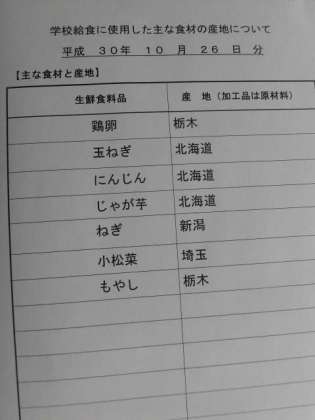 学校給食に使用した主な食材の産地について
平成 30年 10 月 26 日 分
【主な食材と産地】
生鮮食料品 産 地（加工品は原材料）
鶏卵 栃木
玉ねぎ 北海道
にんじん 北海道
じゃが芋 北海道
ねぎ 新潟
小松菜 埼玉
もやし 栃木